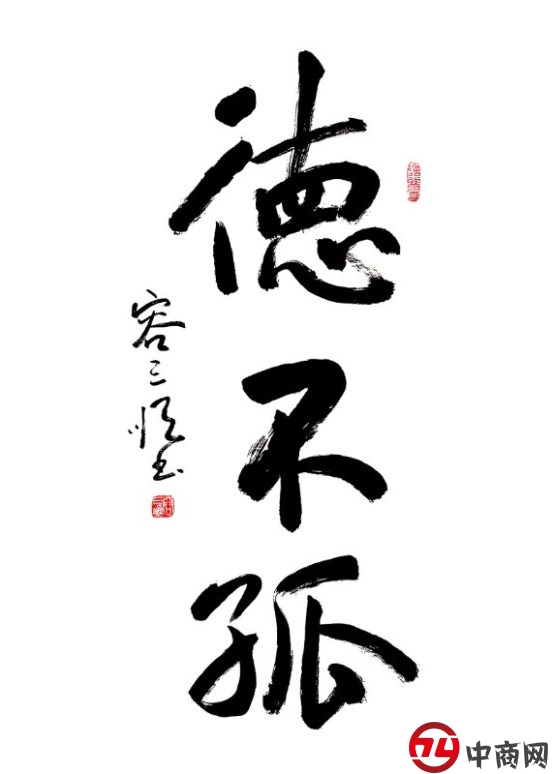 德不孤
容三恒书
中商网